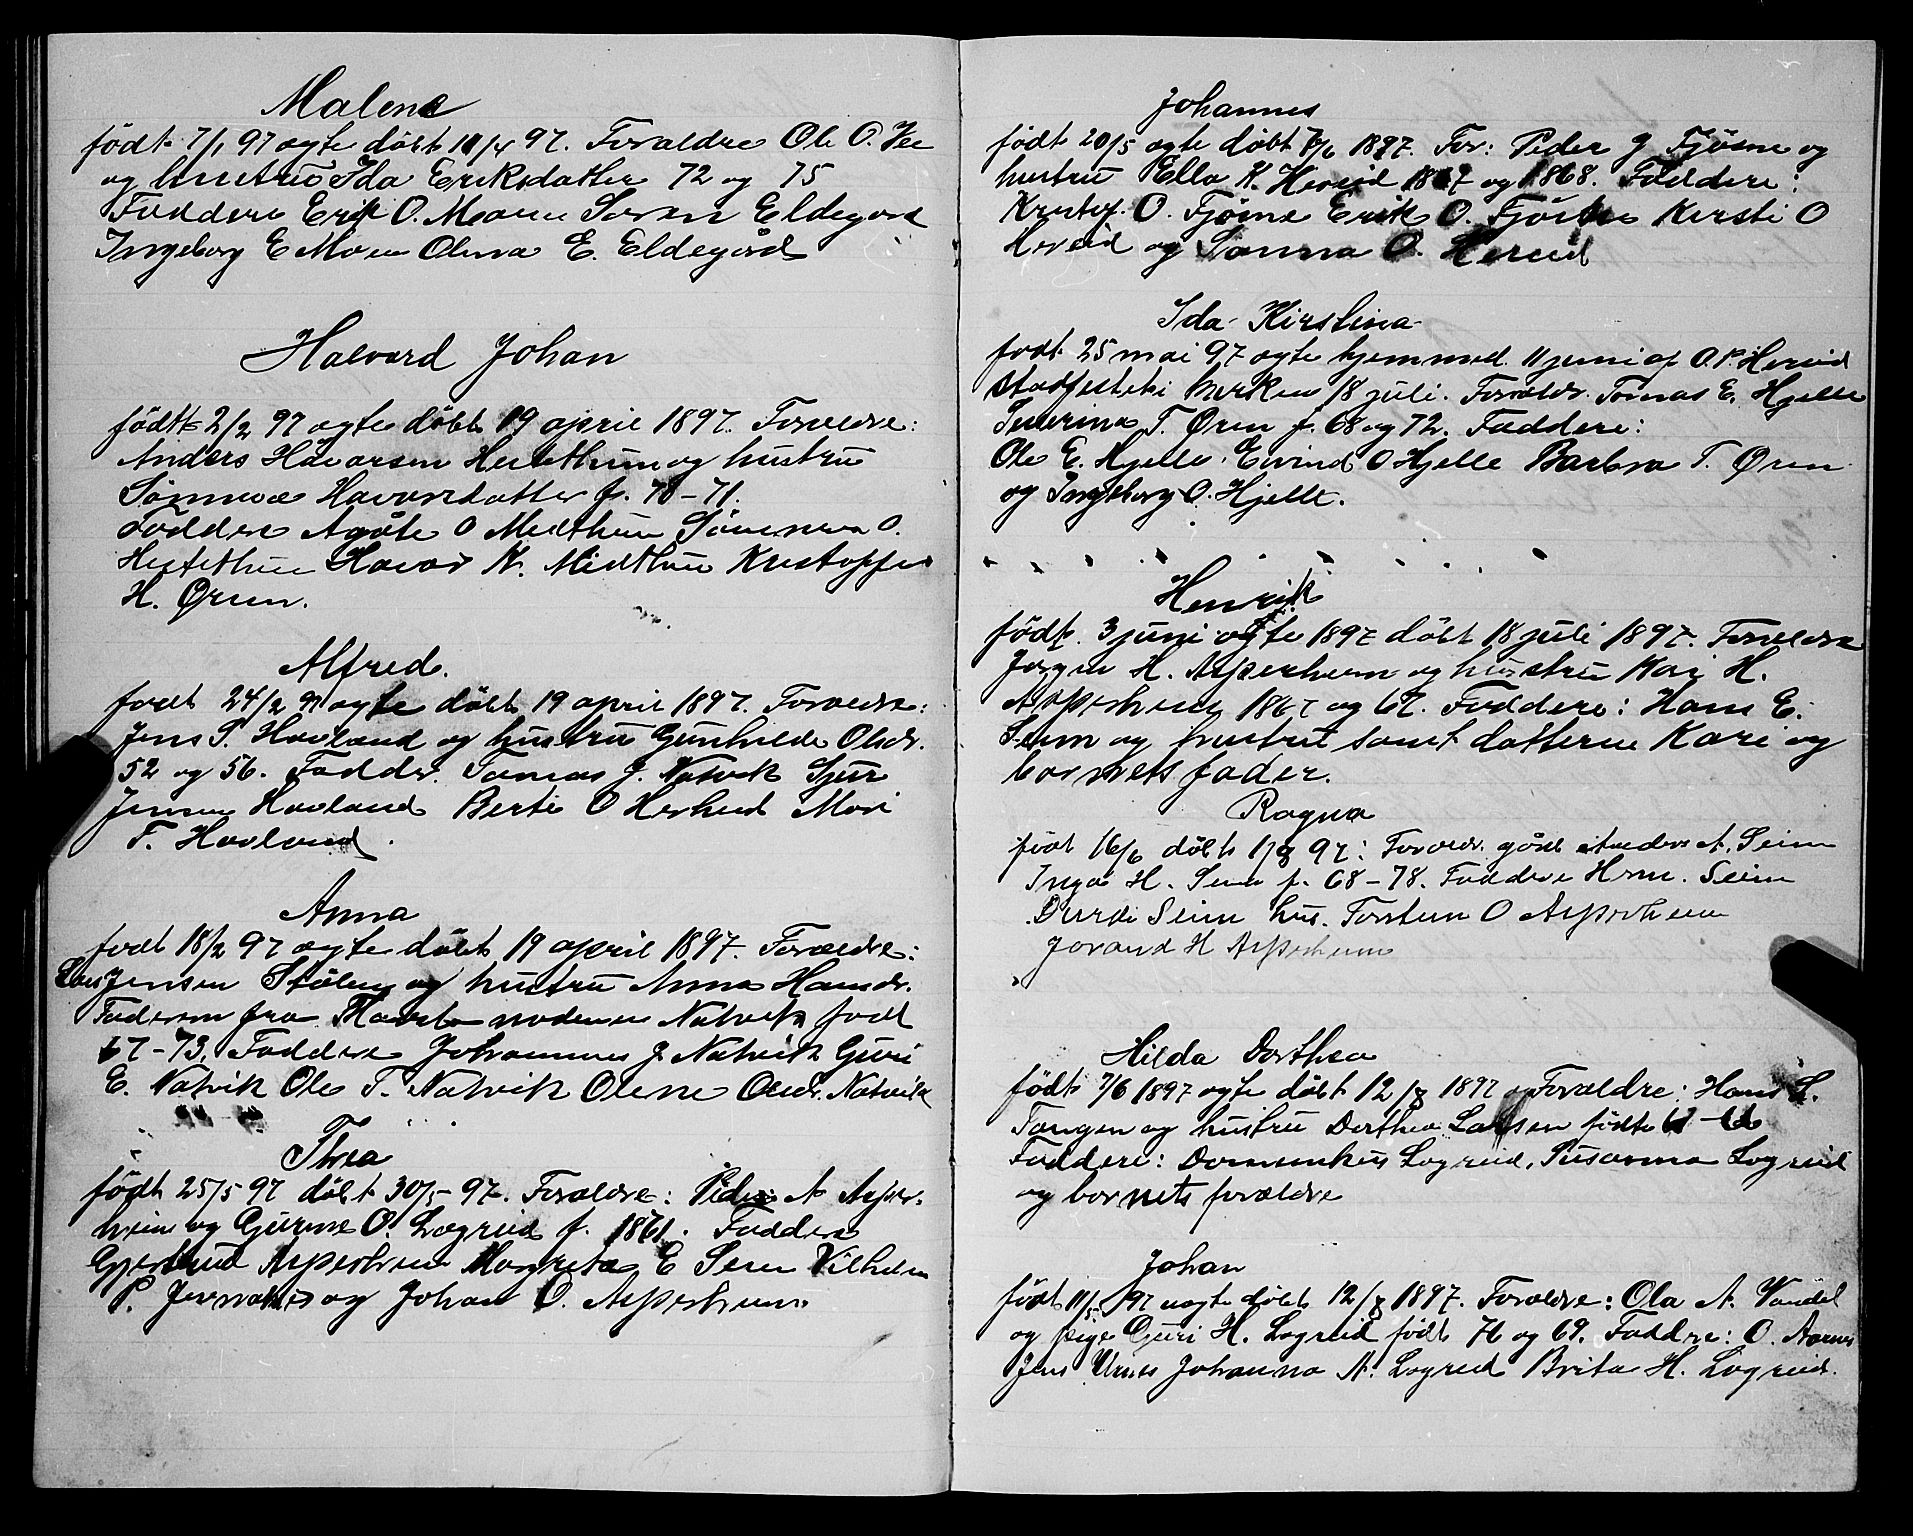 Malene
født 7/1 97 ægte døbt 10/4 97. Forældre Ole O. Vee
og hustru Ida Eriksdatter 72 og 75
Faddere Erik O. Moen Soren Eldegård
Ingeborg E Moen Olena E. Eldegård
Halvard Johan
født 2/2 97 ægte døbt 19 april 1897. Forældre:
Anders Håvarsen Hestethun og hustru
Sønneva Havarsdatter f. 70-71.
Faddere Agåte O Midthun Sønneva O.
Hestethun Havar N. Midthun Kristoffer
H. Øren.
Alfred.
født 24/2 97 ægte døbt 19 april 1897. Forældre:
Jens S. Havland og hustru Gunhilde Olsdr.
52 og 56. Faddr. Tomas J. Natvik Sjur
Jensen Havland Berte O Hereid Mari
T. Havland.
Anna
født 18/2 97 ægte døbt 19 april 1897. Forældre:
Lars Jensen Stølen og hustru Anna Hansdr.
Faderen fra moderen Natvik født
67-73. Faddere Johannes J Natvik Guri
E. Natvik Ole T. Natvik Olene Olsdr. Natvik
Thea
født 25/5 97 døbt 30/5 97. Forældre: Peder A Asper-
heim og Gjurine O. Lægreid f. 1861. Faddere
Gjertrud Asperheim Margreta E Seim Vilhelm
P. og Johan O. Asperheim
Johannes
født 20/5 ægte døbt 7/6 1897. For: Peder J Fjøsne og
hustru Ella K. Hereid 1867 og 1868. Faddere:
Kristof. O. Fjøsne Erik O. Fjøsne Kersti O
Hereid og Sanna O. Hereid
Ida Kirstina
født 25 mai 97 ægte hjemmed. 11 juni af O.P. Hereid
stadfestet i kirken 18 juli. Foræld. Tomas E. Hjelle
Severina T. Øren f. 68 og 72. Faddere:
Ole E. Hjelle. Eivind O Hjelle Barbra T. Øren
og Ingeborg O. Hjelle.
Henrik
født 3 juni ægte 1897 døbt 18 juli 1897. Forældre
Jørgen H. Asperheim og hustru Kari H.
Asperheim 1867 og 67. Faddere: Hans E.
Seim og hustru samt datteren Kari og
barnets fader.
Ragna
født 16/6 døbt 1/8 97: Foræld. gårdb Anders A. Seim
Inga H. Seim f. 68-78. Faddere Hrm. Seim
Durdi Seim hus. Torstein O Asperheim
Jorand H Asperheim
Hilda Dorthea
født 7/6 1897 ægte døbt 12/8 1897 Forældre: Hans L.
Tangen og hustru Dorthea Larsen født
Faddere: Lægreid, Susanna Lægreid
og barnets forældre
Johan
født 11/5 97 uægte døbt 12/8 1897. Forældre: Ola A. Vandel
og pige Guri H. Lægreid født 76 og 69. Faddre: O. Aarnes
Jens Urnes Johanna A. Lægreid Brita H. Lægreid.